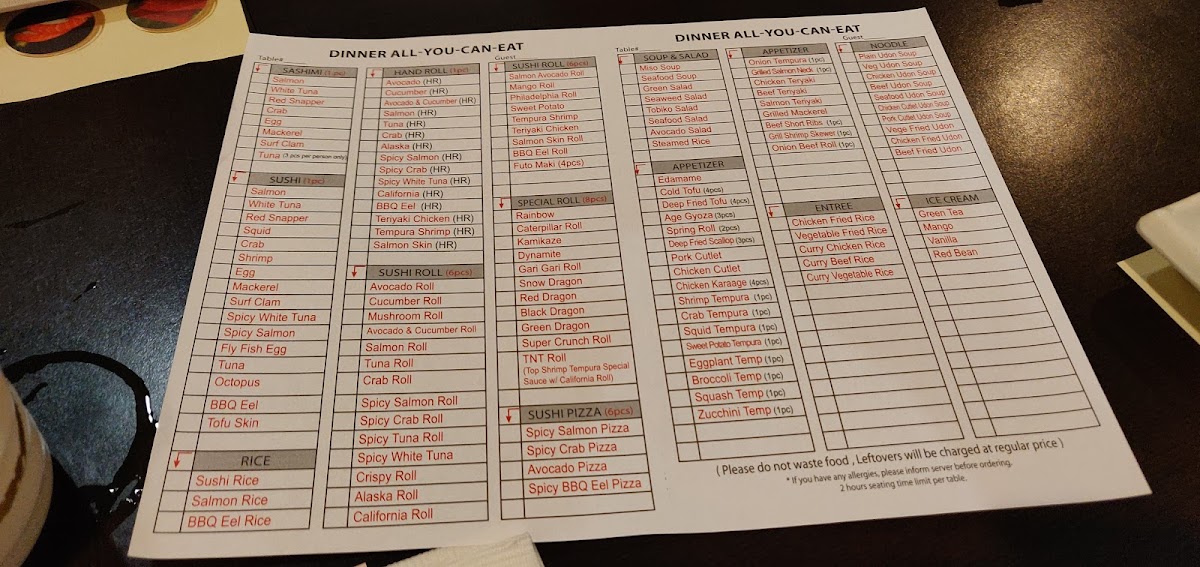 DINNER ALL-YOU-CAN-EAT
Table#
Guest
SASHIMI (1 pc)
Salmon
White Tuna
Red Snapper
Crab
Egg
Mackerel
Surf Clam
Tuna (3 pcs per person only)
SUSHI (1pc)
Salmon
White Tuna
Red Snapper
Squid
Crab
Shrimp
Egg
Mackerel
Surf Clam
Spicy White Tuna
Spicy Salmon
Fly Fish Egg
Tuna
Octopus
BBQ Eel
Tofu Skin
RICE
Sushi Rice
Salmon Rice
BBQ Eel Rice
HAND ROLL (1pc)
Avocado (HR)
Cucumber (HR)
Avocado & Cucumber (HR)
Salmon (HR)
Tuna (HR)
Crab (HR)
Alaska (HR)
Spicy Salmon (HR)
Spicy Crab (HR)
Spicy White Tuna (HR)
California (HR)
BBQ Eel (HR)
Teriyaki Chicken (HR)
Tempura Shrimp (HR)
Salmon Skin (HR)
SUSHI ROLL (6pcs)
Avocado Roll
Cucumber Roll
Mushroom Roll
Avocado & Cucumber Roll
Salmon Roll
Tuna Roll
Crab Roll
Spicy Salmon Roll
Spicy Crab Roll
Spicy Tuna Roll
Spicy White Tuna
Crispy Roll
Alaska Roll
California Roll
SUSHI ROLL (6pcs)
Salmon Avocado Roll
Mango Roll
Philadelphia Roll
Sweet Potato
Tempura Shrimp
Teriyaki Chicken
Salmon Skin Roll
BBQ Eel Roll
Futo Maki (4pcs)
SPECIAL ROLL (8pcs)
Rainbow
Caterpillar Roll
Kamikaze
Dynamite
Gari Gari Roll
Snow Dragon
Red Dragon
Black Dragon
Green Dragon
Super Crunch Roll
TNT Roll
(Top Shrimp Tempura Special
Sauce w/ California Roll)
SUSHI PIZZA (6pcs)
Spicy Salmon Pizza
Spicy Crab Pizza
Avocado Pizza
Spicy BBQ Eel Pizza
DINNER ALL-YOU-CAN-EAT
Table#
Guest
SOUP & SALAD
Miso Soup
Seafood Soup
Green Salad
Seaweed Salad
Tobiko Salad
Seafood Salad
Avocado Salad
Steamed Rice
APPETIZER
Edamame
Cold Tofu (4pcs)
Deep Fried Tofu (4pcs)
Age Gyoza (3pcs)
Spring Roll (2pcs)
Deep Fried Scallop (3pcs)
Pork Cutlet
Chicken Cutlet
Chicken Karaage (4pcs)
Shrimp Tempura (1pc)
Crab Tempura (1pc)
Squid Tempura (1pc)
Sweet Potato Tempura (1pc)
Eggplant Temp (1pc)
Broccoli Temp (1pc)
Squash Temp (1pc)
Zucchini Temp (1pc)
APPETIZER
Onion Tempura (1pc)
Grilled Salmon Neck (1pc)
Chicken Teriyaki
Beef Teriyaki
Salmon Teriyaki
Grilled Mackerel
Beef Short Ribs (1pc)
Grill Shrimp Skewer (1pc)
Onion Beef Roll (1pc)
ENTREE
Chicken Fried Rice
Vegetable Fried Rice
Curry Chicken Rice
Curry Beef Rice
Curry Vegetable Rice
NOODLE
Plain Udon Soup
Veg Udon Soup
Chicken Udon Soup
Beef Udon Soup
Seafood Udon Soup
Chicken Cutlet Udon Soup
Pork Cutlet Udon Soup
Vege Fried Udon
Chicken Fried Udon
Beef Fried Udon
ICE CREAM
Green Tea
Mango
Vanilla
Red Bean
( Please do not waste food , Leftovers will be charged at regular price )
* If you have any allergies, please inform server before ordering.
2 hours seating time limit per table.